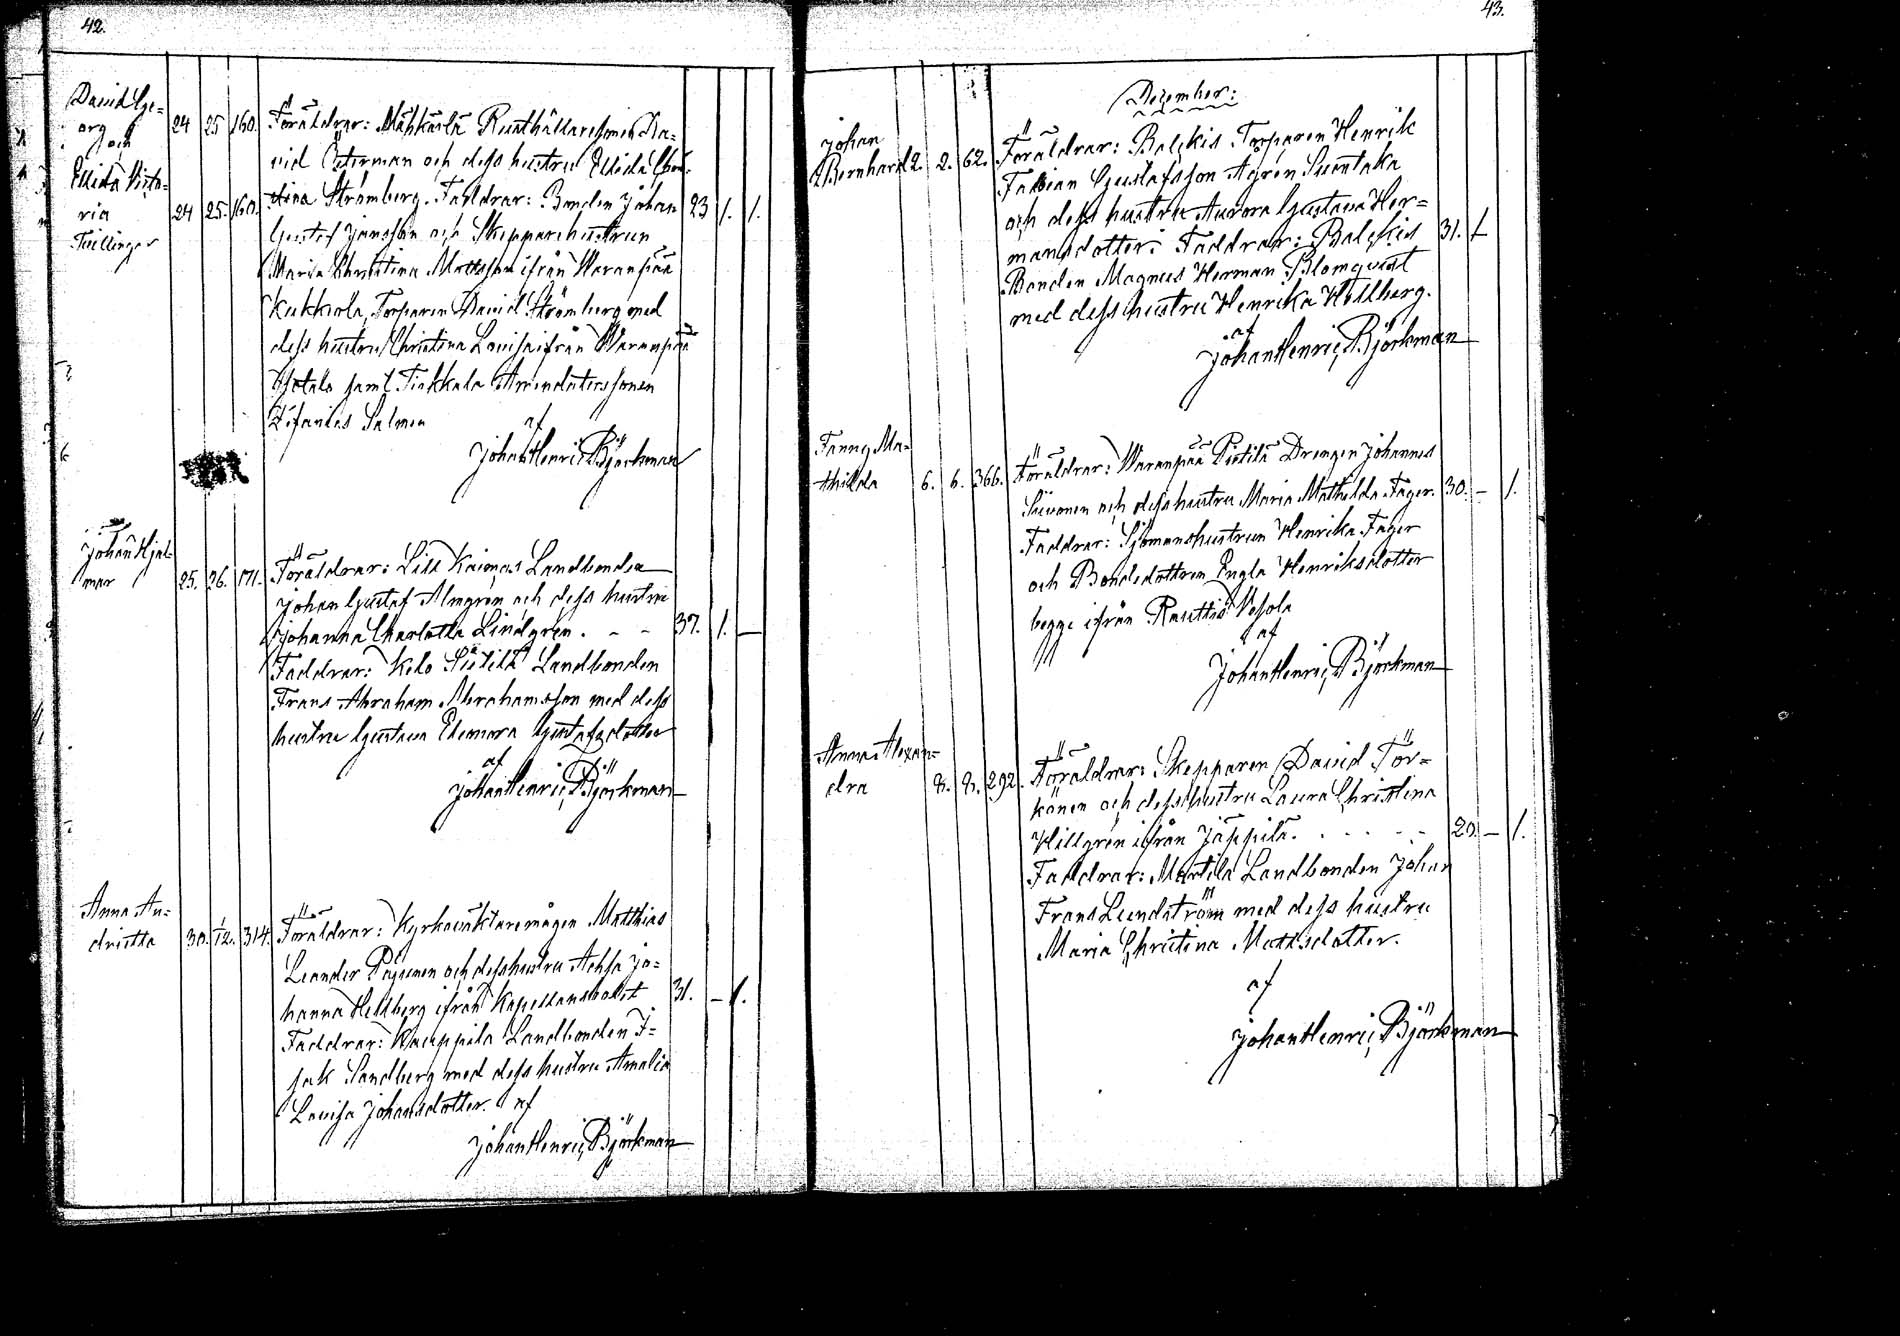 42.
David Ge=
org och
Ellida Victo=
ria
Tvillingar
24 25 160.
24 25. 160.
Föräldrar: Mähkärlä Rusthållaresonen Da=
vid Österman och dess hustru Ellida Chri=
stina Strömberg. Faddrar: Bonden Johan 23 1. 1.
Gustaf Jansson och Skepparehustrun
Maria Christina Mattsson ifrån Waranpää
Kukkola, Torparen David Strömberg med
dess hustru Christina Lovisa ifrån Waranpää
samt Tiekkala Arrendatorssonen
Salmen af
Johan Henric Björkman
Johan Hjal=
mar 25. 26. 171.
Föräldrar: Lill Kaimas Landbonden
Johan Gustaf Almgren och dess hustru
Johanna Charlotta Lindgren. - - 37. 1. —
Faddrar: Kelo Landbonden
Frans Abraham Abrahamsson med dess
hustru Gustava Eleonora Gustafsdotter
af
Johan Henric Björkman
Anna An=
drietta 30. 1/12. 314.
Föräldrar: Kyrkovaktaremågen Matthias
Leander Pajunen och dess hustru Achsa Jo=
hanna Hellberg ifrån Kapellansbolet 31. - 1.
Faddrar: Kauppila Landbonden I=
sak Sandberg med dess hustru Amalia
Lovisa Johansdotter. af
Johan Henric Björkman
43.
December:
Johan
Bernhard 2. 2. 62.
Föräldrar: Balckis Torparen Henrik
Fabian Gustafsson Agren Suontaka
och dess hustru Aurora Gustava Her=
mansdotter. Faddrar: Balckis 31. 1
Bonden Magnus Herman Blomqvist
med dess hustru Henrika Hellberg.
af
Johan Henric Björkman
Fanny Ma=
thilda 6. 6. 366.
Föräldrar: Waranpää Pietilä Drengen Johannes
Siivonen och dess hustru Maria Mathilda Fager. 30. - 1.
Faddrar: Sjömanshustrun Henrika Fager
och Bondedottren Engla Henriksdotter
begge ifrån Rauttis Wesola
af
Johan Henric Björkman
Anna Alexan=
dra 8. 8. 292.
Föräldrar: Skepparen David Tör=
könen och dess hustru Laura Christina
Hillgrén ifrån Jäppilä. . . - . - - 20. - 1.
Faddrar: Martila Landbonden Johan
Frans Lundström med dess hustru
Maria Christina Mattsdotter.
af
Johan Henric Björkman